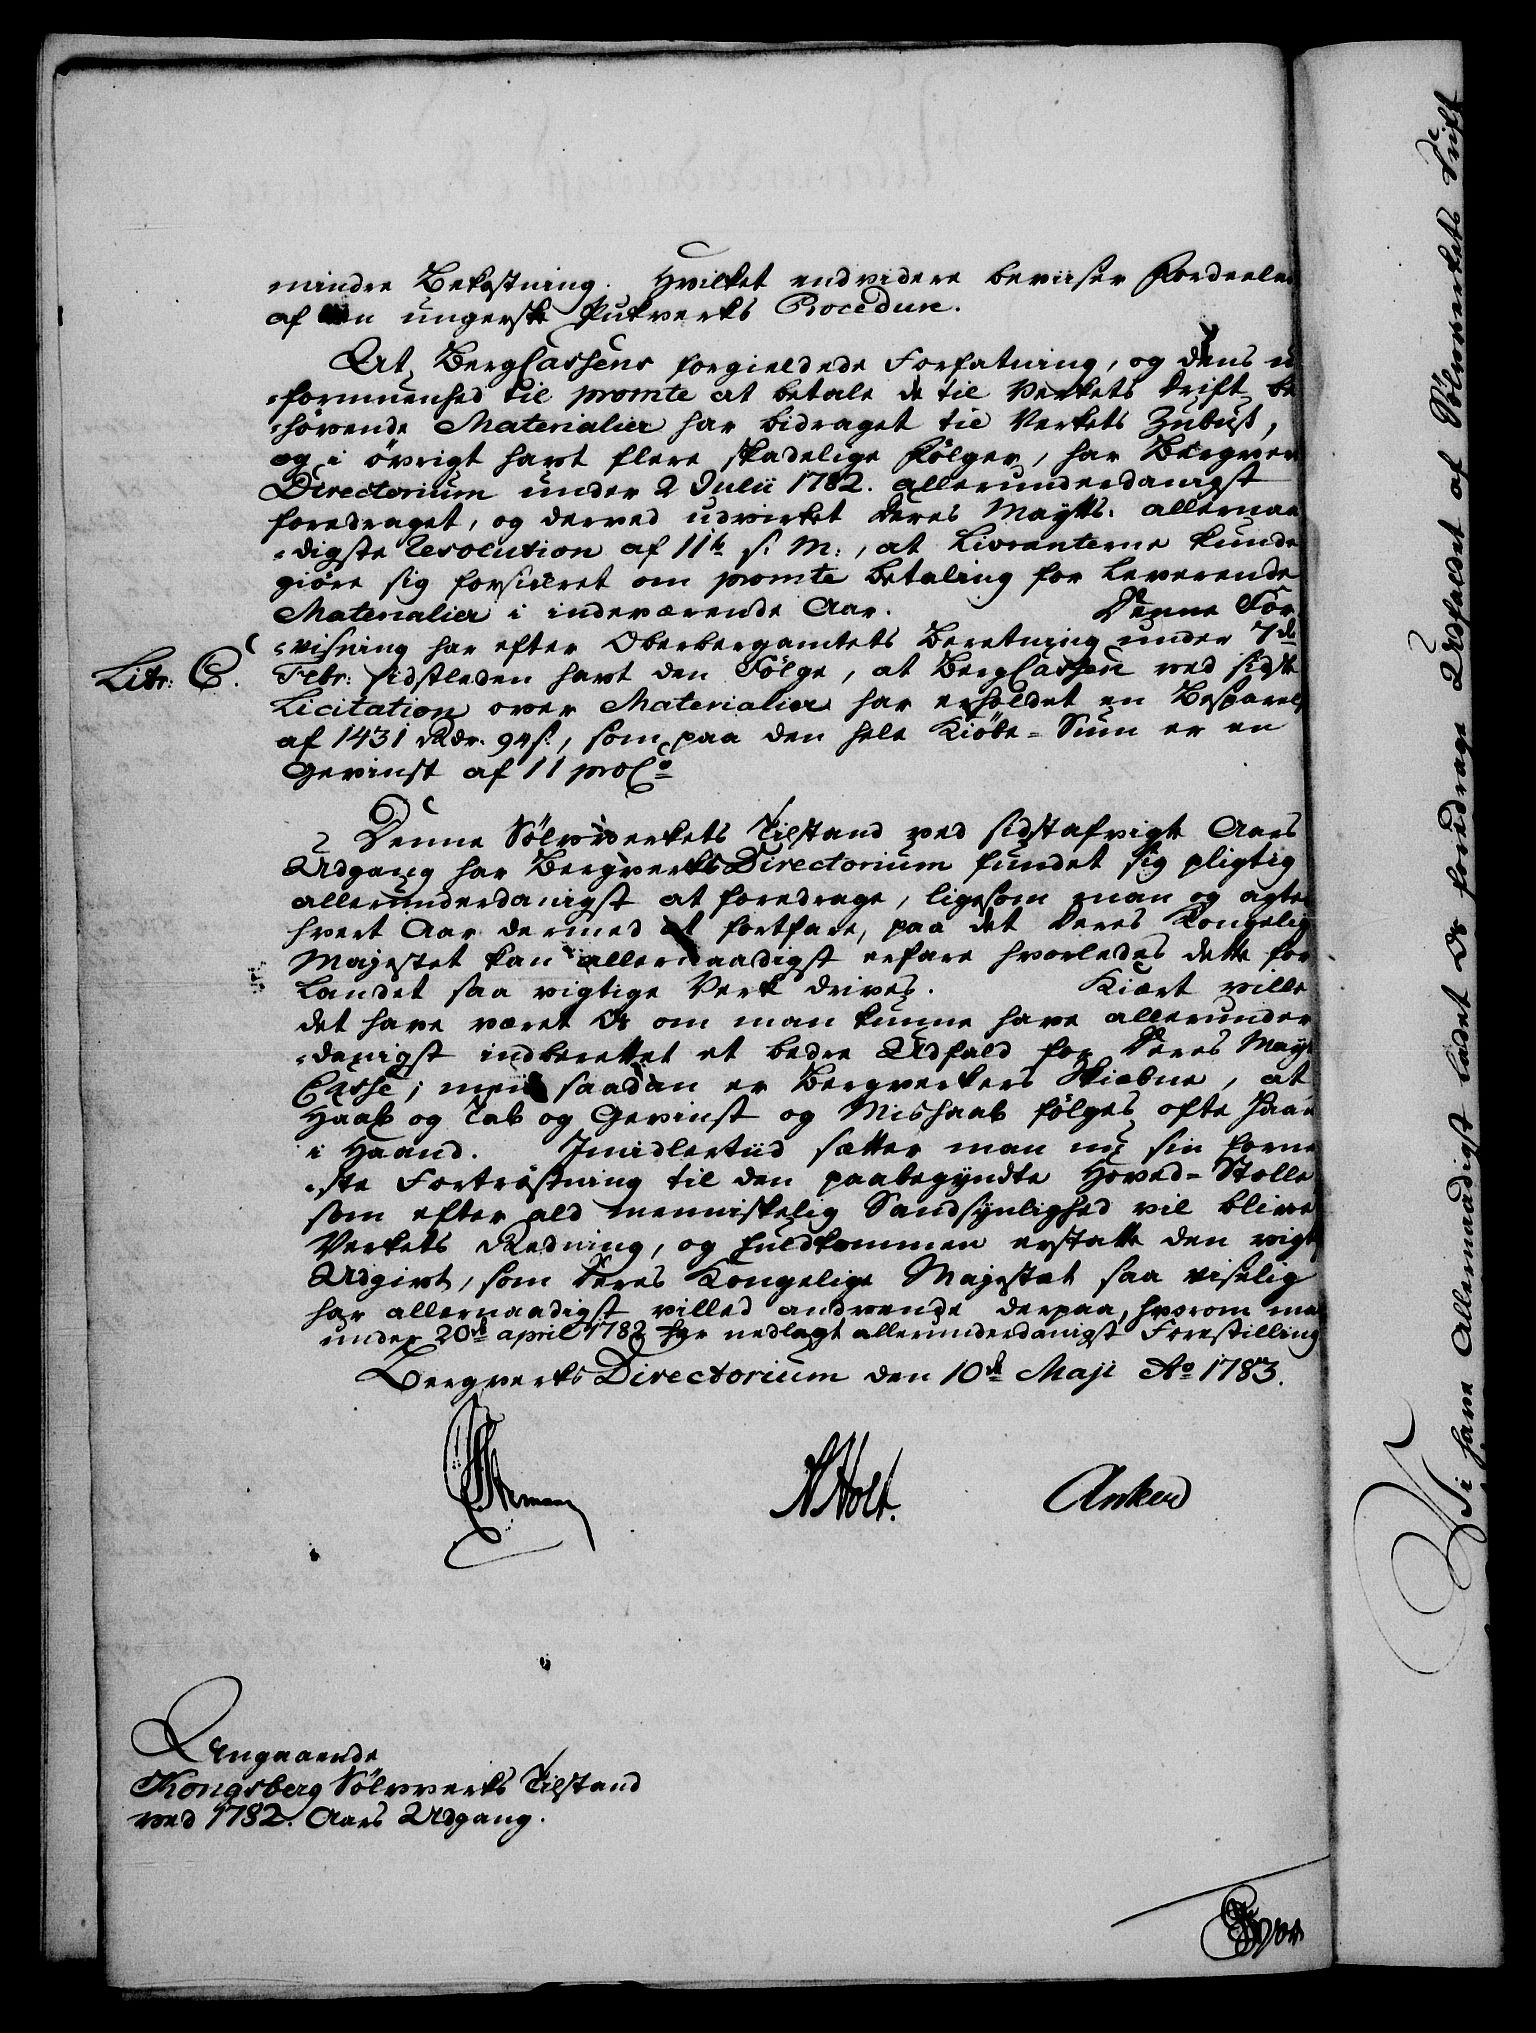 mindre Bekostning. Hvilket endvidere beviiser Fordeelen
af den ungerske Pukverks Procedure.
At BergCassens forgieldede Forfatning, og dens u
-formuenhed til promte at betale de til Verkets Drift be
-hövende Materialier har bidraget til Verkets Zubus,
og i övrigt havt flere skadelige Fölger, har Bergverks
Directorium under 2 Julii 1782. allerunderdanigst
foredraget, og derved udvirket Deres Maytts: allernaa
-digste Resolution af 11te s: M:, at Livranterne kunde
giöre sig forsikret om promte betaling for leverende
Materialier i indeværende Aar. Denne For
-visning har efter Oberbergamtets Beretning under 7de
Litr: C.
Febr: sidstleden havt den Fölge, at BergCassen ved sidste
Licitation over Materialier har erholdet en Besparelse
af 1431 Rdr. 94 s:, som paa den hele Kiöbe-Sum er en
Gevinst af 11 proCo
Denne Sölvverkets Tilstand ved sidstafvigte Aars
Udgang har BergverksDirectorium fundet sig pligtig
allerunderdanigst at foredrage, ligesom man og agter
hvert Aar dermed at fortfare, paa det Deres Kongelige
Majestet kan allernaadigst erfare hvorledes dette for
Landet saa vigtige Verk drives. Kiært ville
det have været Os om man kunne have allerunder
-danigst indberettet et bedre Udfald for Deres Mayts
Casse; men saadan er Bergverkers Skiebne, at
Haab og Tab og Gevinst og Mishaab fölges ofte Haan
i Haand. Imidlertiid sætter man nu sin forne
-ste Fortröstning til den paabegyndte Hoved-Stolle
som efter ald menniskelig Sandsynlighed vil blive
Verkets Redning, og fuldkommen erstatte den vigti
Udgivt, som Deres Kongelige Majestæt saa viselig
har allernaadigst villed anvende derpaa, hvorom man
under 20de april 1782 har nedlagt allerunderdanigst Forestilling
BergverksDirectorium den 10de Maji Ao 1783.
HHolt. Anker
Angaaende
Kongsberg Sölvverks Tilstand
ved 1782. Aars Udgang.
Vi have Allernaadigst ladet Os foredrage Udfaldet af Sölvverkets Drift